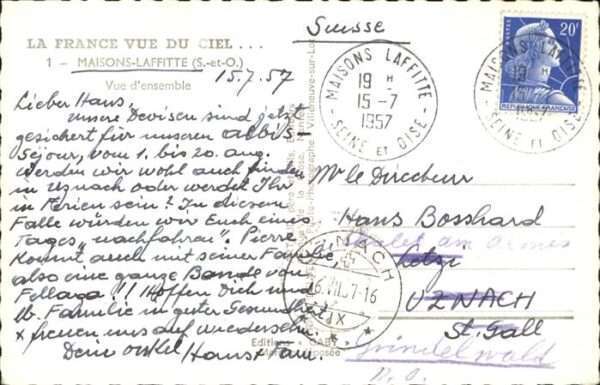 Suisse
LA FRANCE VUE DU CIEL...
1 - MAISONS-LAFFITTE (S.-et-O.)
Vue d'ensemble
15.7.57
Lieber Hans,
unsere Devisen sind jetzt
gesichert für unseren Albis-
Séjour, vom 1. bis 20. Aug.
Werden wir wohl auch finden
in Uznach oder werdet Ihr
in Ferien sein? In diesem
Falle würden wir Euch eines
Tages "nachfahren". Pierre
kommt auch mit seiner Familie
also eine ganze Bande von
Fellaga!!! Hoffen Dich und
lb. Familie in guter Gesundheit
x freuen uns auf wiedersehn.
Dein onkel Hans x Fam.
MAISONS LAFFITTE
19 H
15-7
1957
SEINE ET OISE
20F
REPUBLIQUE FRANÇAISE
MAISONS LAFFITTE
19 H
1957
SEINE ET OISE
Mr le Directeur
Hans Bosshard
UZNACH
St. Gall
Grindelwald
UZNACH
16.VII.57-16
Editions